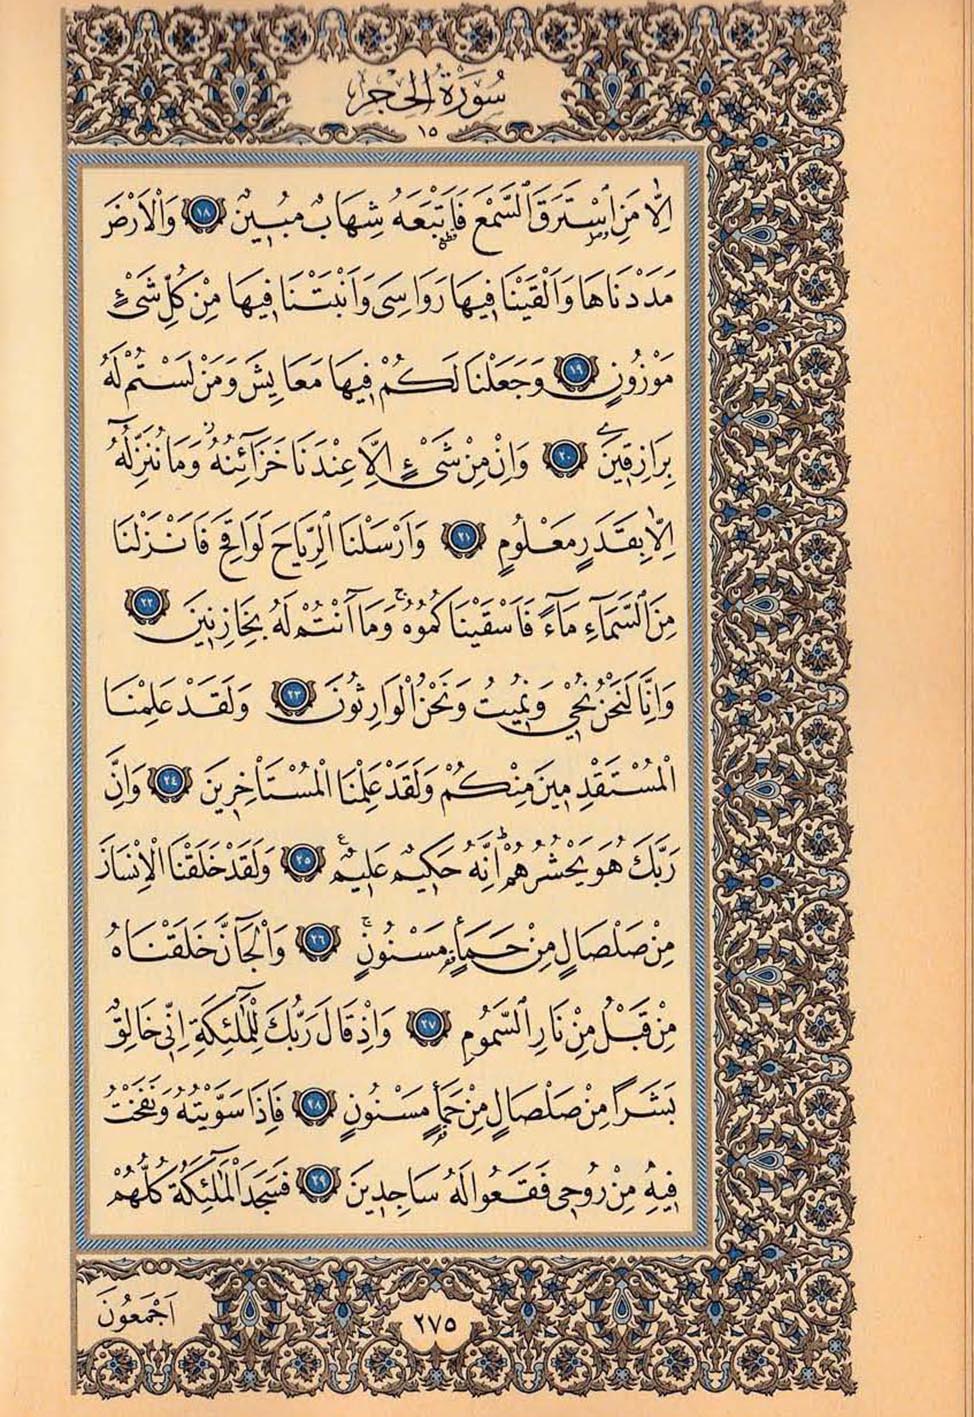 سُورَةُ الْحِجْرِ
١٥
اِلَّا مَنِ اسْتَرَقَ السَّمْعَ فَاَتْبَعَهُ شِهَابٌ مُبِينٌ ﴿١٨﴾ وَالْاَرْضَ
مَدَدْنَاهَا وَاَلْقَيْنَا فِيهَا رَوَاسِيَ وَاَنْبَتْنَا فِيهَا مِنْ كُلِّ شَيْءٍ
مَوْزُونٍ ﴿١٩﴾ وَجَعَلْنَا لَكُمْ فِيهَا مَعَايِشَ وَمَنْ لَسْتُمْ لَهُ
بِرَازِقِينَ ﴿٢٠﴾ وَاِنْ مِنْ شَيْءٍ اِلَّا عِنْدَنَا خَزَٓائِنُهُۘ وَمَا نُنَزِّلُهُٓ
اِلَّا بِقَدَرٍ مَعْلُومٍ ﴿٢١﴾ وَاَرْسَلْنَا الرِّيَاحَ لَوَاقِحَ فَاَنْزَلْنَا
مِنَ السَّمَٓاءِ مَٓاءً فَاَسْقَيْنَاكُمُوهُۚ وَمَٓا اَنْتُمْ لَهُ بِخَازِنِينَ ﴿٢٢﴾
وَاِنَّا لَنَحْنُ نُحْيِي وَنُمِيتُ وَنَحْنُ الْوَارِثُونَ ﴿٢٣﴾ وَلَقَدْ عَلِمْنَا
الْمُسْتَقْدِمِينَ مِنْكُمْ وَلَقَدْ عَلِمْنَا الْمُسْتَأْخِرِينَ ﴿٢٤﴾ وَاِنَّ
رَبَّكَ هُوَ يَحْشُرُهُمْۜ اِنَّهُ حَكِيمٌ عَلِيمٌ ﴿٢٥﴾ وَلَقَدْ خَلَقْنَا الْاِنْسَانَ
مِنْ صَلْصَالٍ مِنْ حَمَأٍ مَسْنُونٍۚ ﴿٢٦﴾ وَالْجَٓانَّ خَلَقْنَاهُ
مِنْ قَبْلُ مِنْ نَارِ السَّمُومِ ﴿٢٧﴾ وَاِذْ قَالَ رَبُّكَ لِلْمَلٰٓئِكَةِ اِنِّي خَالِقٌ
بَشَرًا مِنْ صَلْصَالٍ مِنْ حَمَأٍ مَسْنُونٍ ﴿٢٨﴾ فَاِذَا سَوَّيْتُهُ وَنَفَخْتُ
فِيهِ مِنْ رُوحِي فَقَعُوا لَهُ سَاجِدِينَ ﴿٢٩﴾ فَسَجَدَ الْمَلٰٓئِكَةُ كُلُّهُمْ
اَجْمَعُونَ
٢٧٥